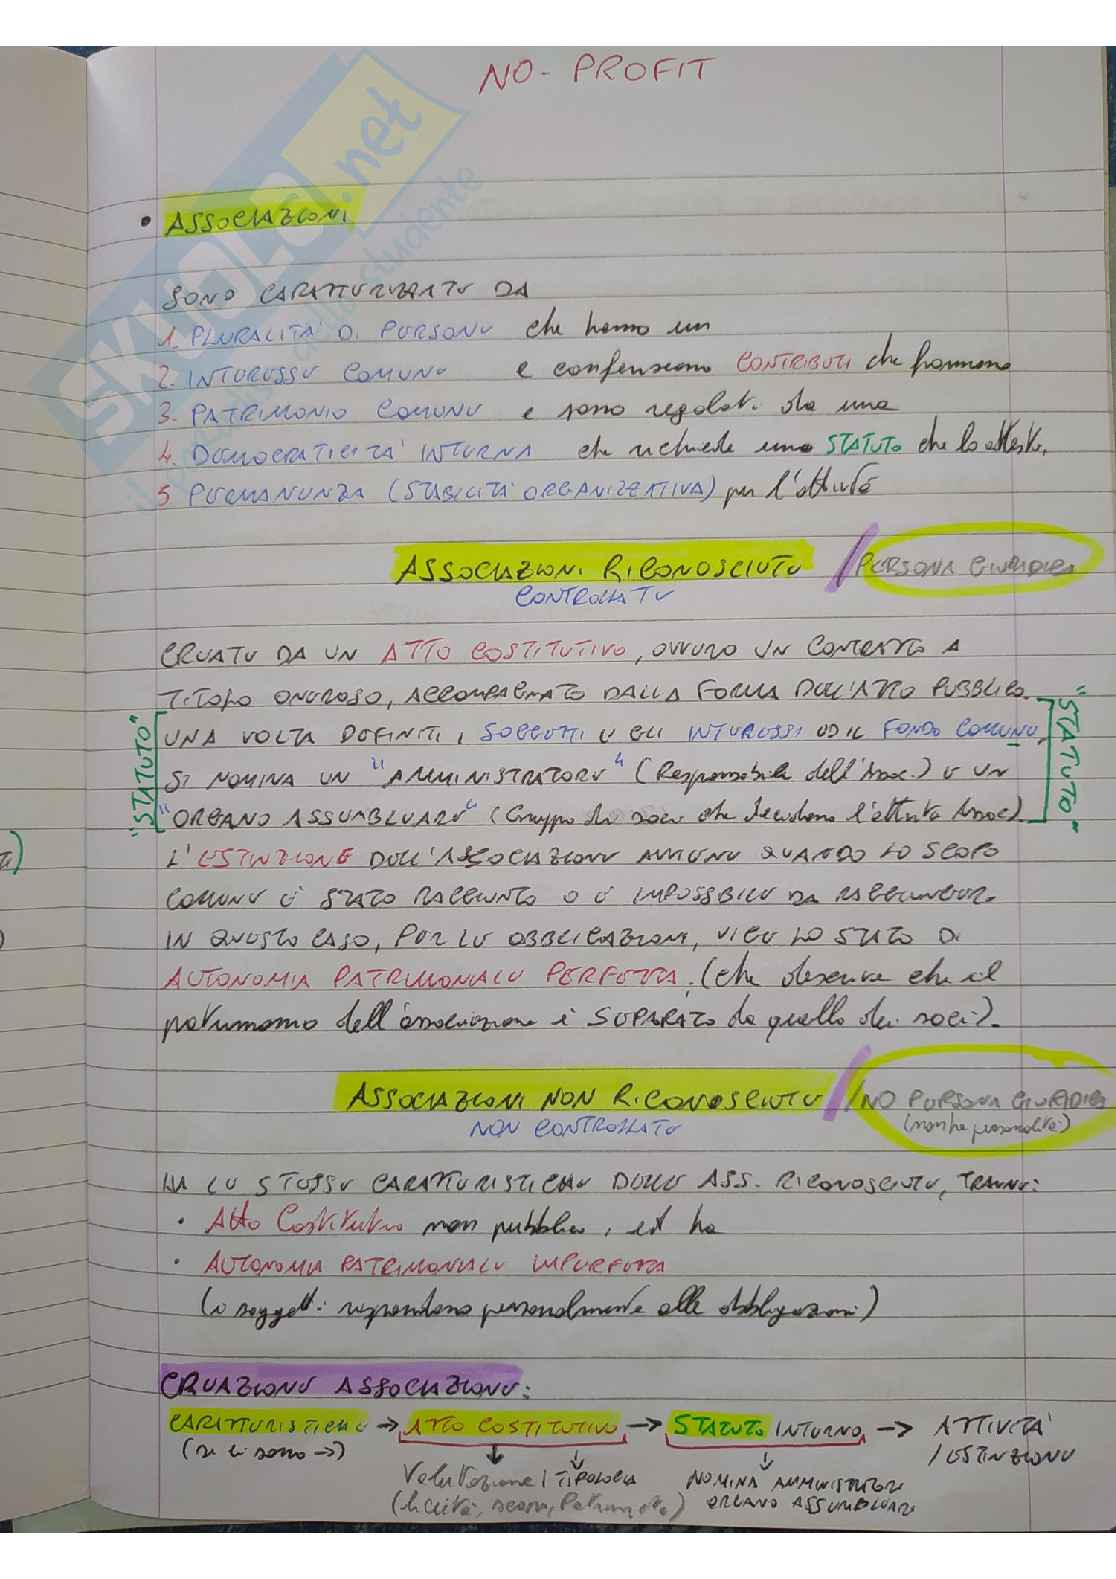 NO-PROFIT
• ASSOCIAZIONI
SONO CARATTERIZZATE DA
1. PLURALITÀ DI PERSONE che hanno un
2. INTERESSE COMUNE e conferiscono CONTRIBUTI che formano
3. PATRIMONIO COMUNE e sono regolati da una
4. DEMOCRATICITÀ INTERNA che richiede uno STATUTO che lo attesta,
5 PERMANENZA (STABILITÀ ORGANIZZATIVA) per l'attività
ASSOCIAZIONI RICONOSCIUTE / PERSONA GIURIDICA
CONTROLLATE
CREATE DA UN ATTO COSTITUTIVO, OVVERO UN CONTRATTO A
TITOLO ONEROSO, ACCOMPAGNATO DALLA FORMA DELL'ATTO PUBBLICO.
UNA VOLTA DEFINITI I SOGGETTI E GLI INTERESSI ED IL FONDO COMUNE,
SI NOMINA UN "AMMINISTRATORE" (Responsabile dell'Assoc.) E UN
"ORGANO ASSEMBLEARE" (Gruppo di soci che decidono l'attività Assoc)
"STATUTO"
"STATUTO"
L'ESTINZIONE DELL'ASSOCIAZIONE AVVIENE QUANDO LO SCOPO
COMUNE È STATO RAGGIUNTO O È IMPOSSIBILE DA RAGGIUNGERE.
IN QUESTO CASO, PER LE OBBLIGAZIONI, VIGE LO STATO DI
AUTONOMIA PATRIMONIALE PERFETTA. (che descrive che il
patrimonio dell'associazione è SEPARATO da quello dei soci).
ASSOCIAZIONI NON RICONOSCIUTE / NO PERSONA GIURIDICA
NON CONTROLLATE (non ha personalità)
HA LE STESSE CARATTERISTICHE DELLE ASS. RICONOSCIUTE, TRANNE:
• Atto Costitutivo non pubblico, ed ha
• AUTONOMIA PATRIMONIALE IMPERFETTA
(i soggetti rispondono personalmente alle obbligazioni)
CREAZIONE ASSOCIAZIONE:
CARATTERISTICHE → ATTO COSTITUTIVO → STATUTO INTERNO → ATTIVITÀ
(se ci sono →) / ESTINZIONE
Valutazione | TIPOLOGIA NOMINA AMMINISTRATORE
(liceità, scopo, Patrimonio) ORGANO ASSEMBLEARE
SKUOLA.net